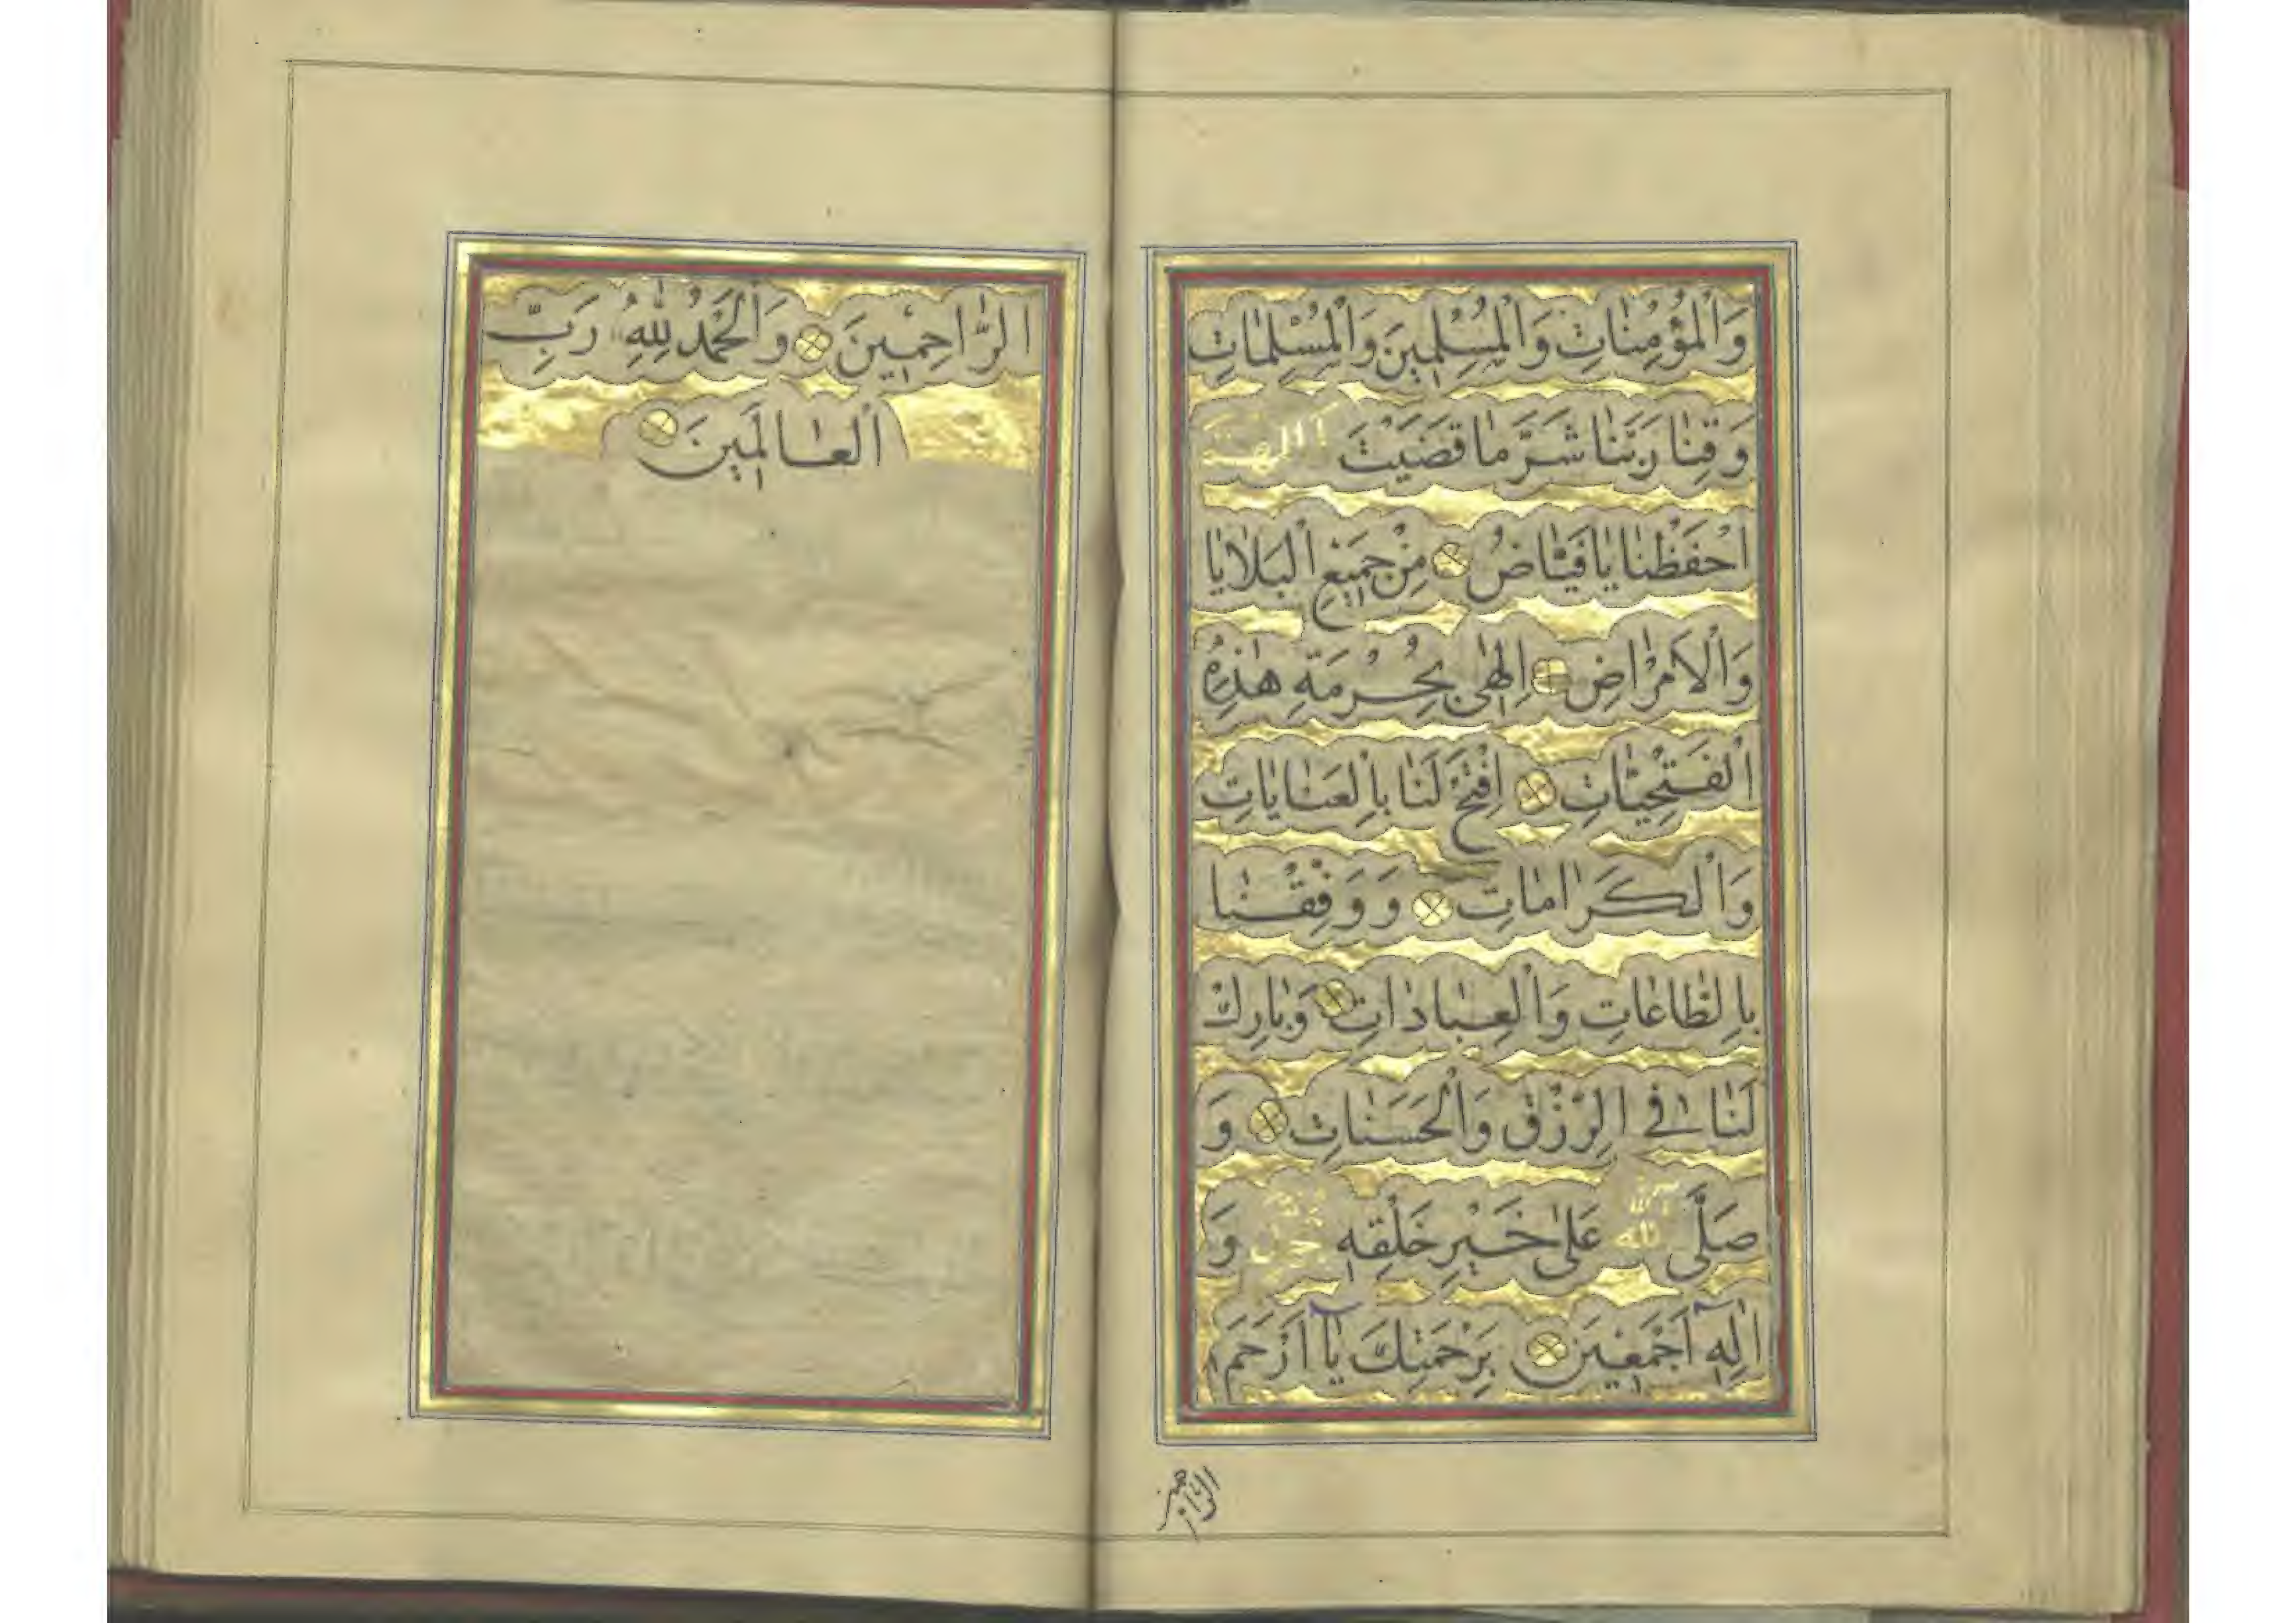 وَالْمُؤْمِنَاتِ وَالْمُسْلِمِينَ وَالْمُسْلِمَاتِ
وَقِنَا رَبَّنَا شَرَّ مَا قَضَيْتَ
احْفَظْنَا يَا فَيَّاضُ مِنْ جَمِيعِ الْبَلَايَا
وَالْاَمْرَاضِ اِلٰهِى بِحُرْمَةِ هٰذِهِ
الْفَتْحِيَّاتِ اِفْتَحْ لَنَا بِالْعَنَايَاتِ
وَالْكَرَامَاتِ وَوَفِّقْنَا
بِالطَّاعَاتِ وَالْعِبَادَاتِ وَبَارِكْ
لَنَا فِى الرِّزْقِ وَالْحَسَنَاتِ وَ
صَلَّى اللّٰه عَلٰى خَيْرِ خَلْقِهِ وَ
اٰلِهِ اَجْمَعِينَ بِرَحْمَتِكَ يَا اَرْحَمَ
الراحمين
الرَّاحِمِينَ وَالْحَمْدُ لِلّٰهِ رَبِّ
الْعَالَمِينَ